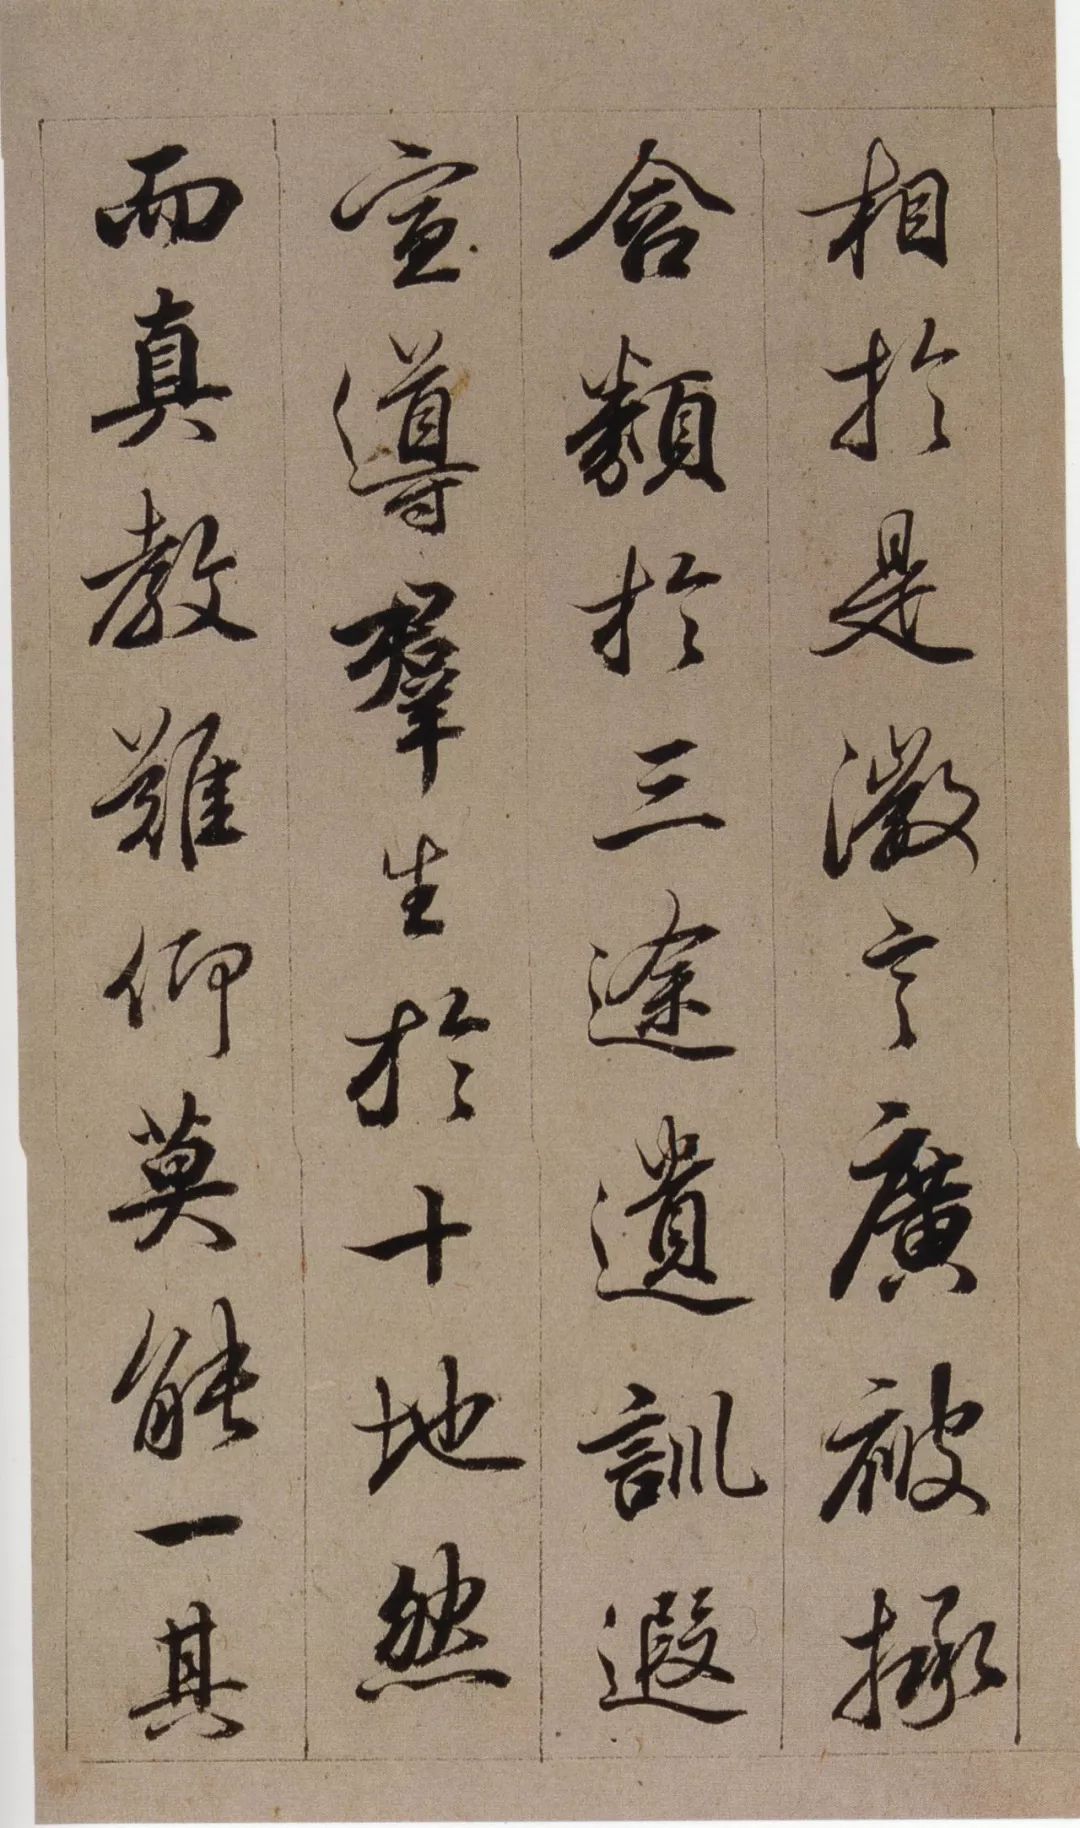 相於是澂言廣被拯
含類於三途遺訓遐
宣導羣生於十地然
而真教難仰莫能一其